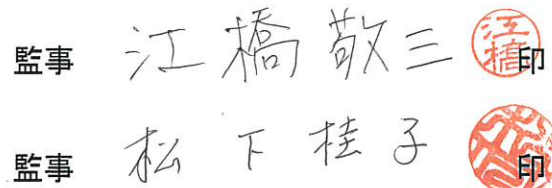 監事 江橋敬三 江橋 印
監事 松下桂子 印